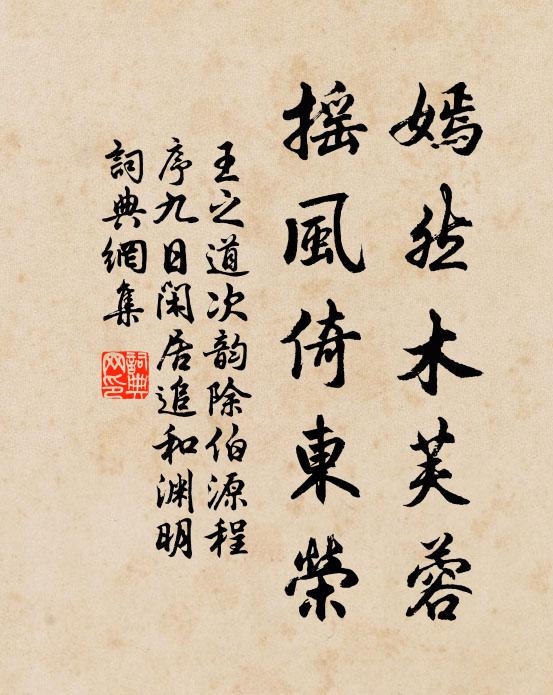 嫣然木芙蓉
摇風倚東榮
王之道次韵除伯源程
序九日閑居追和渊明
詞典網集
詞典网印